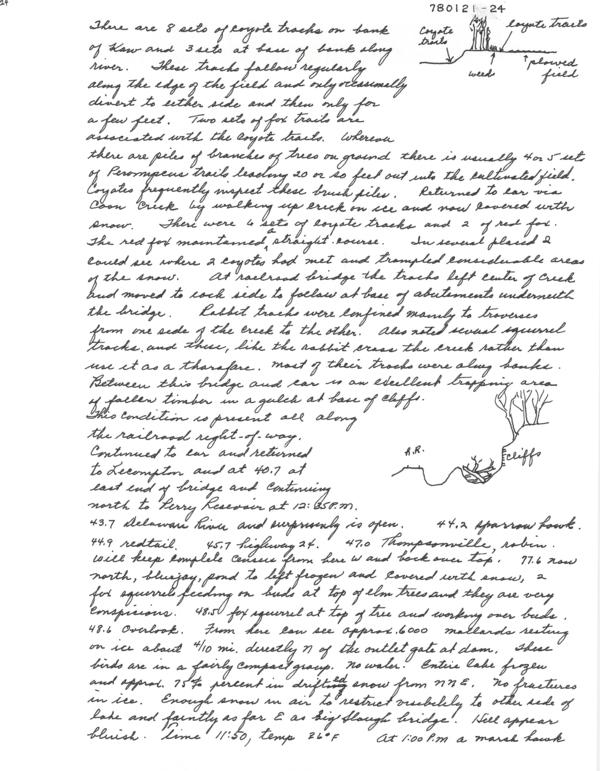 24
780121-24
There are 8 sets of coyote tracks on bank
of Kaw and 3 sets at base of bank along
river. These tracks follow regularly
along the edge of the field and only occasionally
divert to either side and then only for
a few feet. Two sets of fox trails are
associated with the coyote trails. Whereon
coyote trails
coyote trails
weeds
plowed field
there are piles of branches of trees on ground there is usually 4 or 5 sets
of Peromyscus trails leading 20 or so feet out into the cultivated field.
Coyotes frequently inspect these brush piles. Returned to car via
Coon Creek by walking up creek on ice and now covered with
snow. There were 6 sets of coyote tracks and 2 of red fox.
The red fox maintained a straight course. In several placed I
could see where 2 coyotes had met and trampled considerable areas
of the snow. At railroad bridge the tracks left center of Creek
and moved to each side to follow at base of abutements underneath
the bridge. Rabbit tracks were confined mainly to traverses
from one side of the Creek to the other. Also noted several squirrel
tracks and these, like the rabbit cross the creek rather than
use it as a thorofare. Most of their tracks were along banks.
Between this bridge and car is an excellent trapping area
of fallen timber in a gulch at base of cliffs.
This condition is present all along
the railroad right-of-way.
Continued to car and returned
to Lecompton and at 40.7 at
east end of bridge and continuing
north to Perry Resevoir at 12:35 P.M.
R.R.
cliffs
43.7 Delaware River and surprisingly is open. 44.2 sparrow hawk.
44.9 redtail. 45.7 highway 24. 47.0 Thompsonville, robin.
Will keep complete census from here W and back over top. 47.6 now
north, bluejay, pond to left frozen and covered with snow, 2
fox squirrels feeding on buds at top of elm trees and they are very
conspicious. 48.5 fox squirrel at top of tree and working over buds.
48.6 Overlook. From here can see approx. 6000 mallards resting
on ice about 4/10 mi. directly N of the outlet gate at dam. These
birds are in a fairly compact group. No water. Entire lake frozen
and approx. 75% percent in drifted snow from NNE. No fractures
in ice. Enough snow in air to restrict visibility to other side of
lake and faintly as far E as Big Slough bridge. Hill appear
bluish. Time 11:50, temp 26°F At 1:00 P.m a marsh hawk